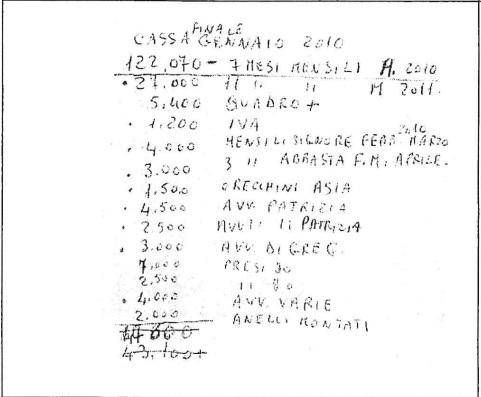 FINALE
CASSA GENNAIO 2010
122.070 - 7 MESI MENSILI A. 2010
• 27.000 11 11 11 M 2011.
5.400 QUADRO +
• 1.200 IVA
2010
• 4.000 MENSILI SIGNORE FEBB. MARZO
• 3.000 3 11 ABBASTA F.M. APRILE.
• 1.500 ORECCHINI ASIA
• 4.500 AVV. PATRIZIA
• 2.500 11 PATRIZIA
• 3.000 AVV. DI GREG.
7.000 PRESI
2.500 11
• 4.000 AVV. VARIE
2.000 ANELLI MONTATI
43.100+